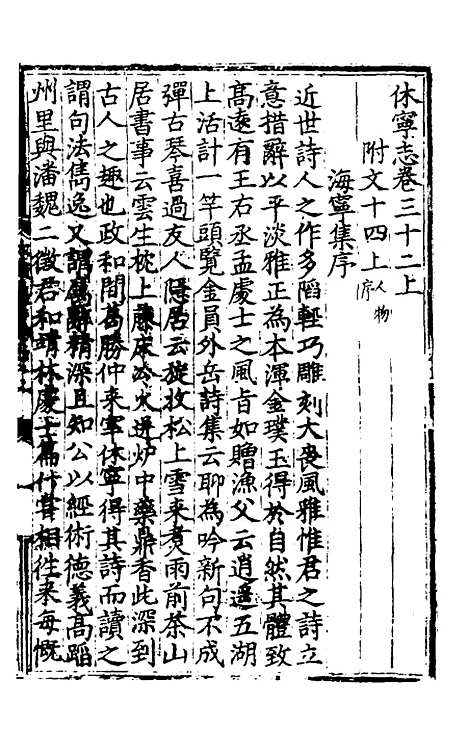 休寧志卷三十二上
附文十四上 人物序
海寧集序
近世詩人之作多陷輕巧雕刻大喪風雅惟君之詩立
意措辭以平淡雅正為本渾金璞玉得於自然其體致
高遠有王右丞孟處士之風旨如贈漁父云逍遙五湖
上活計一竿頭覽金員外岳詩集云聊為吟新句不成
彈古琴喜過友人隱居云旋收松上雪來煑雨前茶山
居書事云雲生枕上藤床冷火迸炉中藥鼎香此深到
古人之趣也政和間葛勝仲來宰休寧得其詩而讀之
謂句法雋逸又謂屬辭精深且知公以經術德義高蹈
州里與潘魏二徵君和靖林處士篇什嘗相往来每慨